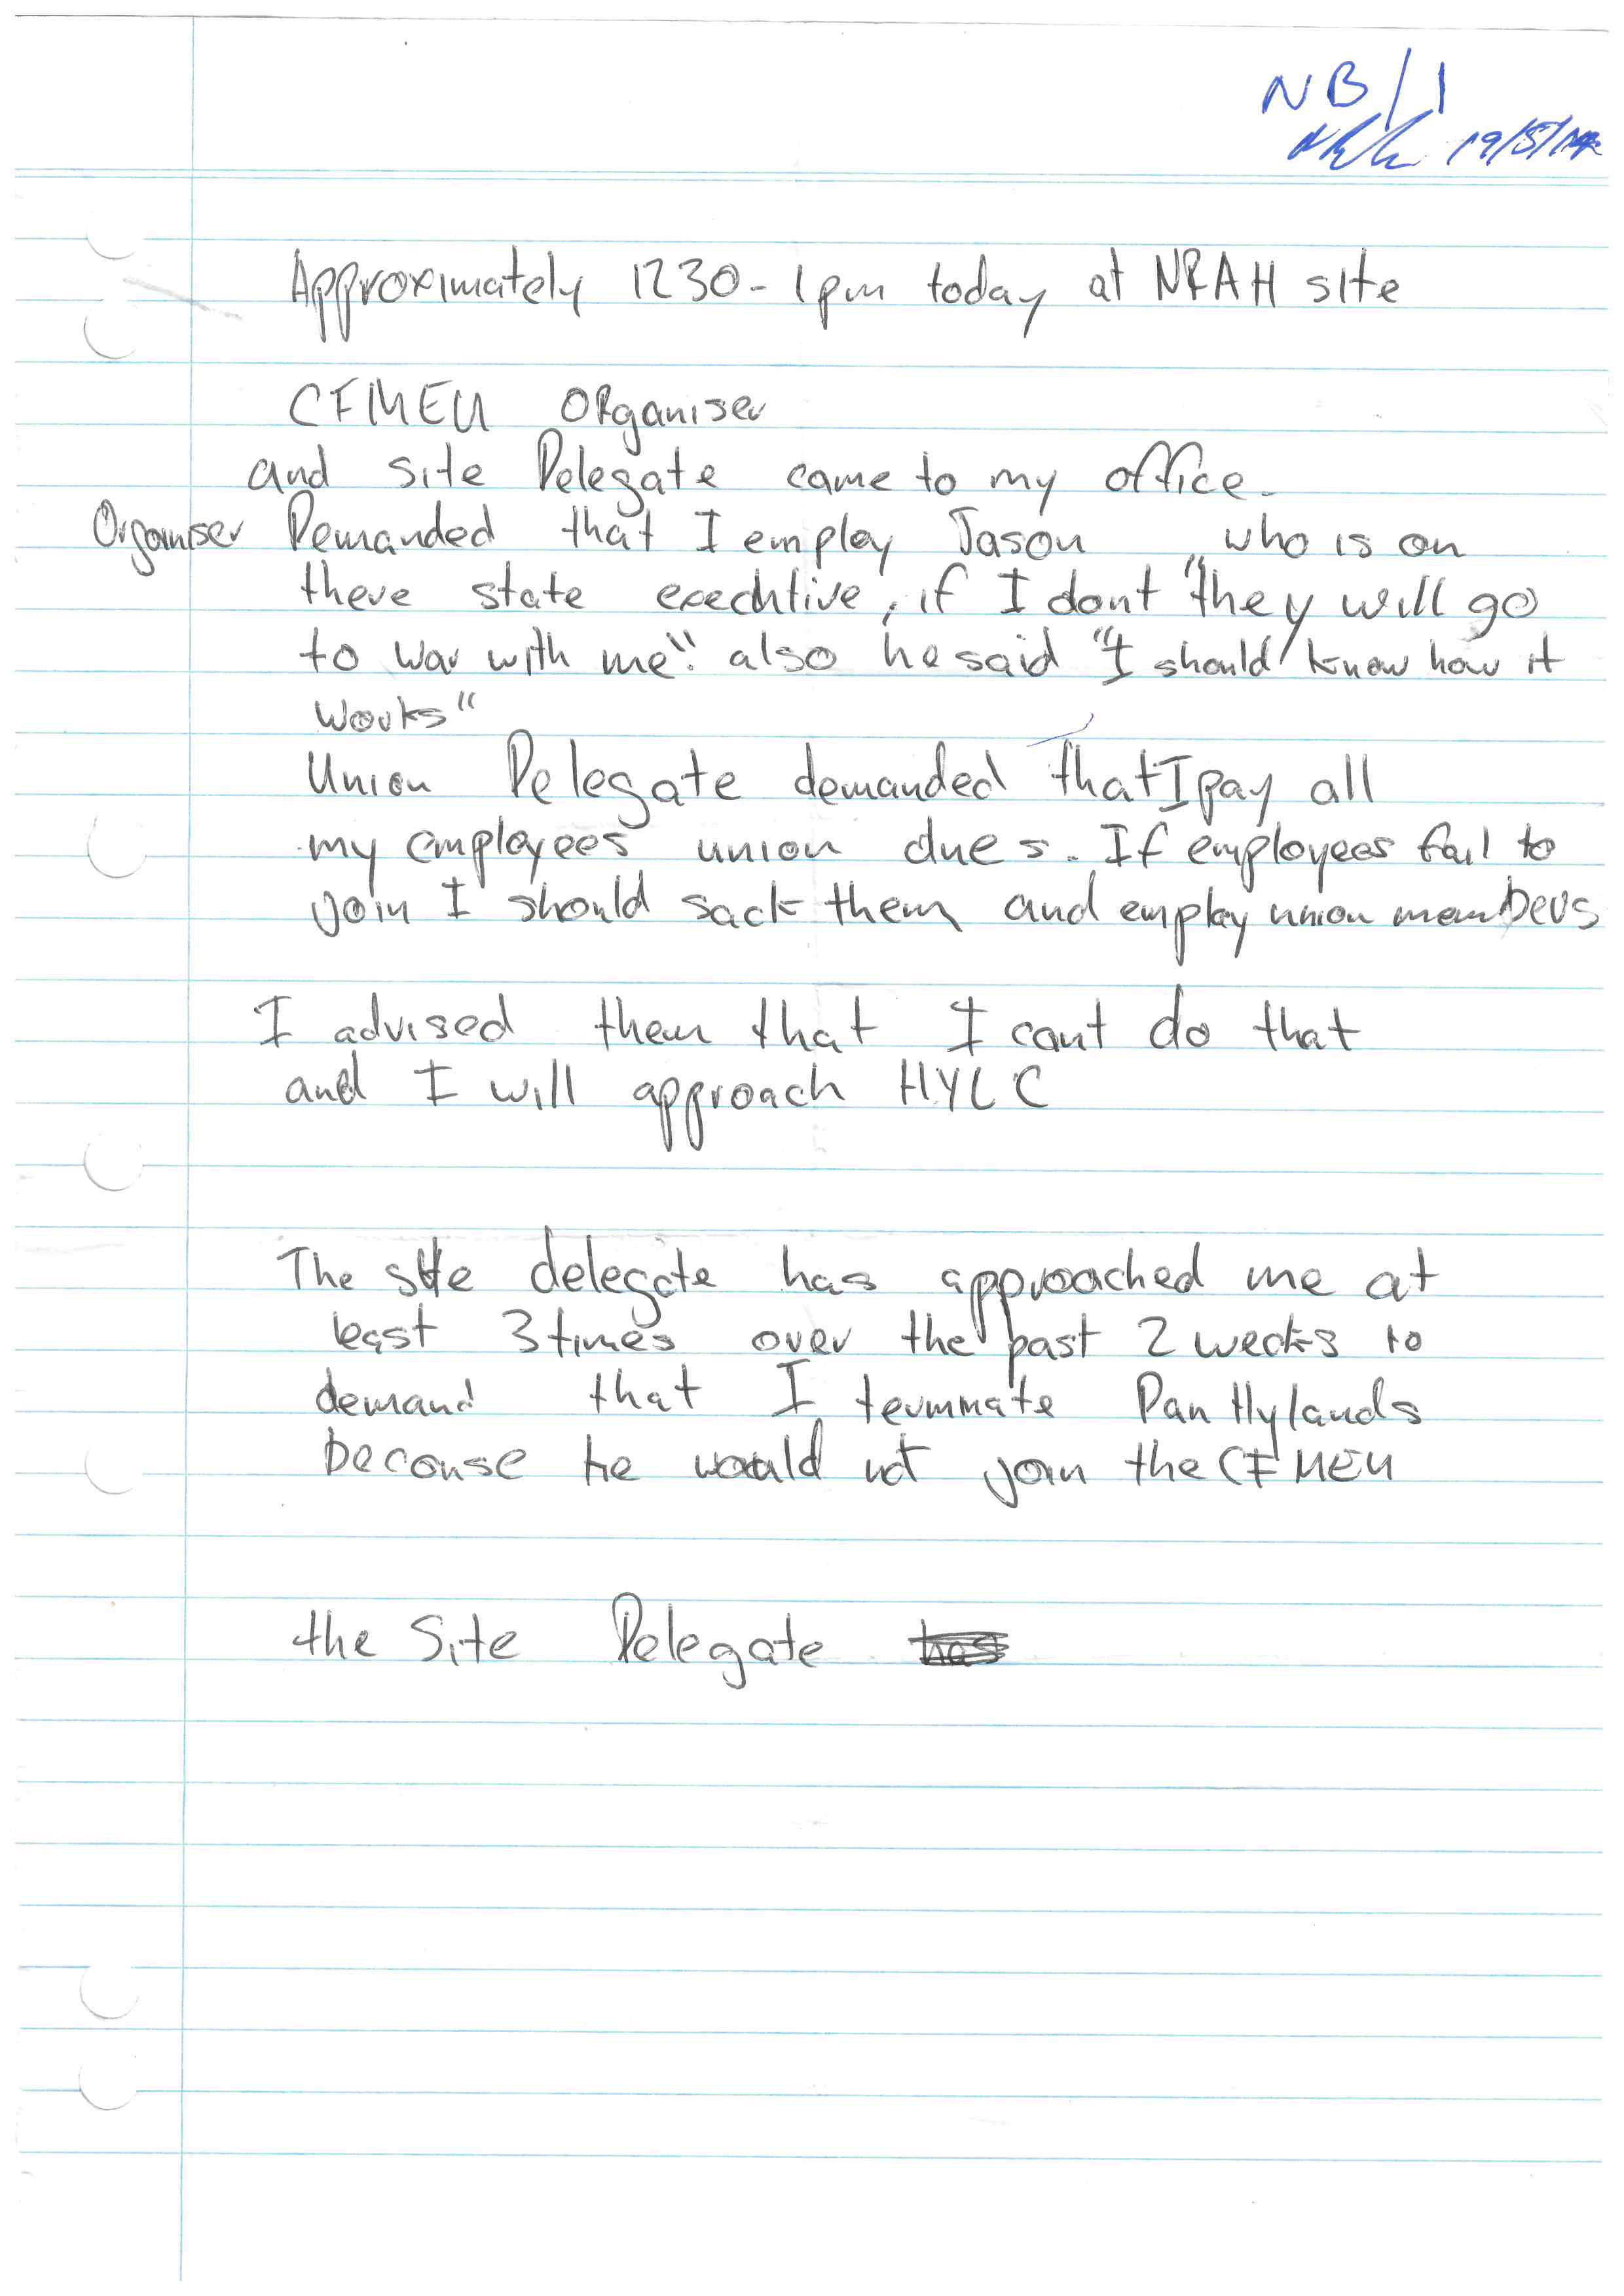 NB/1
19/5/14
Approximately 1230 - 1pm today at NRAH site
CFMEU ORganiser
and site Delegate came to my office.
Organiser Demanded that I employ Jason who is on
there state execxtive, if I dont "they will go
to war with me". also he said "I should know how it
works"
Union Delegate demanded that I pay all
my employees union dues. If employees fail to
join I should sack them and employ union members
I advised them that I cant do that
and I will approach HYLC
The site delegate has approached me at
least 3 times over the past 2 weeks to
demand that I terminate Dan Hylands
because he would not join the CFMEU
the Site Delegate has